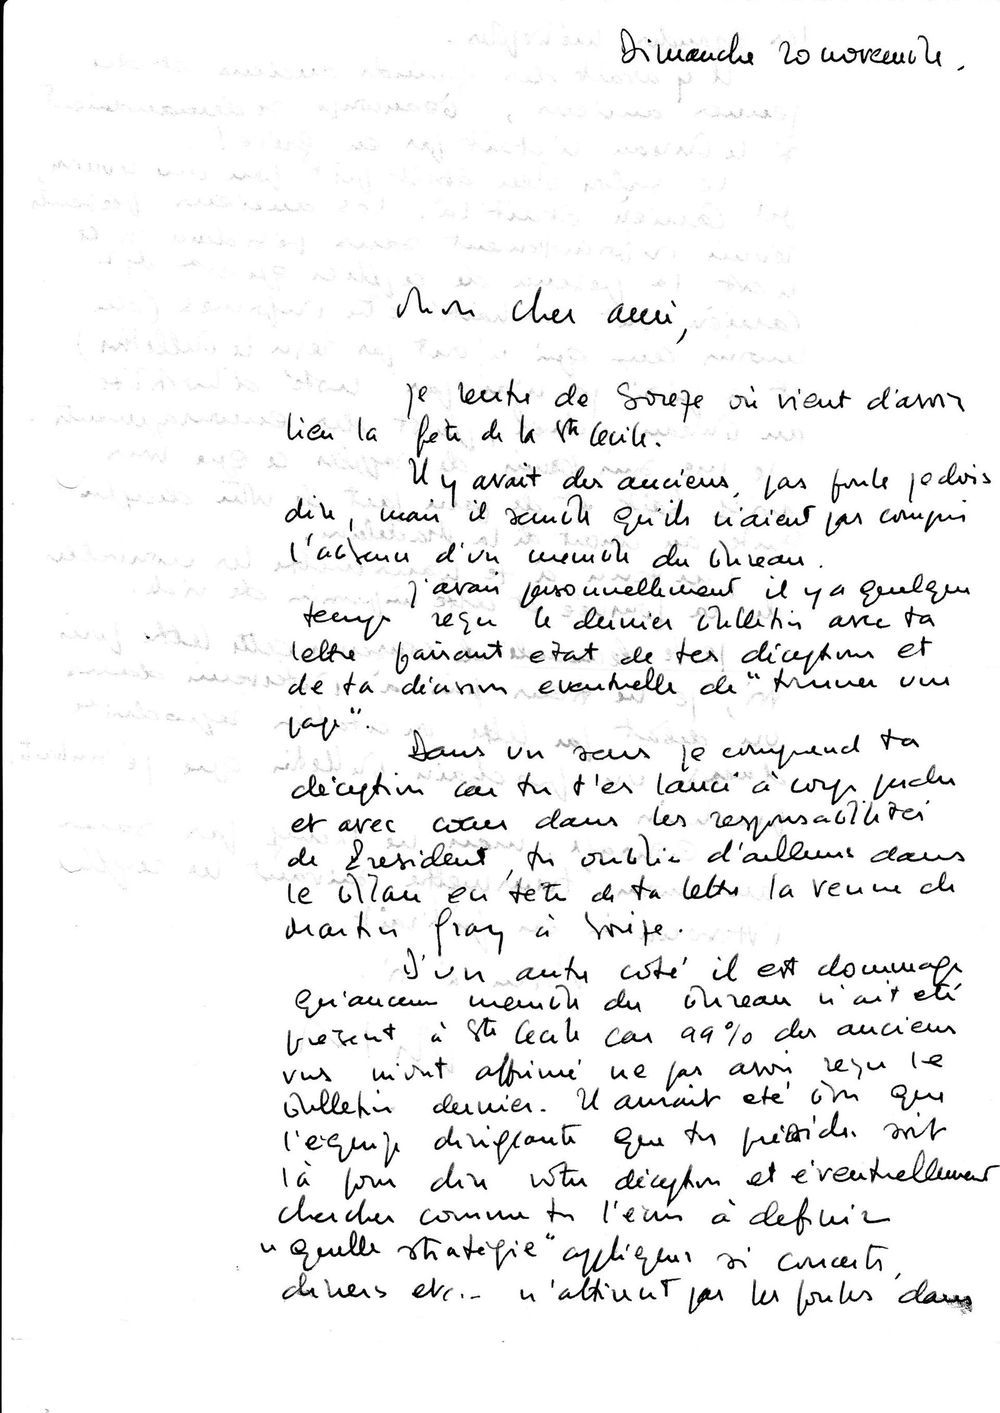 Dimanche 20 novembre.
Mon cher ami,
je rentre de Sorèze où vient d'avoir
lieu la fête de la Ste Cecile.
Il y avait des anciens, pas foule je dois
dire, mais il semble qu'ils n'aient pas compris
l'absence d'un membre du bureau.
J'avais personnellement il y a quelque
temps reçu le dernier bulletin avec ta
lettre faisant etat de tes déceptions et
de ta décision eventuelle de "tourner une
page".
Dans un sens je comprend ta
déception car tu t'es lancé à corps perdu
et avec cœur dans les responsabilités
de Président, tu oublie d'ailleurs dans
le bilan en tête de ta lettre la venue de
Martin Gray à Sorèze.
D'un autre coté il est dommage
qu'aucun membre du bureau n'ait eté
présent à Ste Cecile car 99% des anciens
vus m'ont affirmé ne pas avoir reçu le
bulletin dernier. Il aurait eté bon que
l'equipe dirigeante que tu présides soit
là pour dire votre déception et éventuellement
chercher comme tu l'écris à definir
"quelle stratégie" appliquer si concerts,
diners etc... n'attirent pas les foules dans